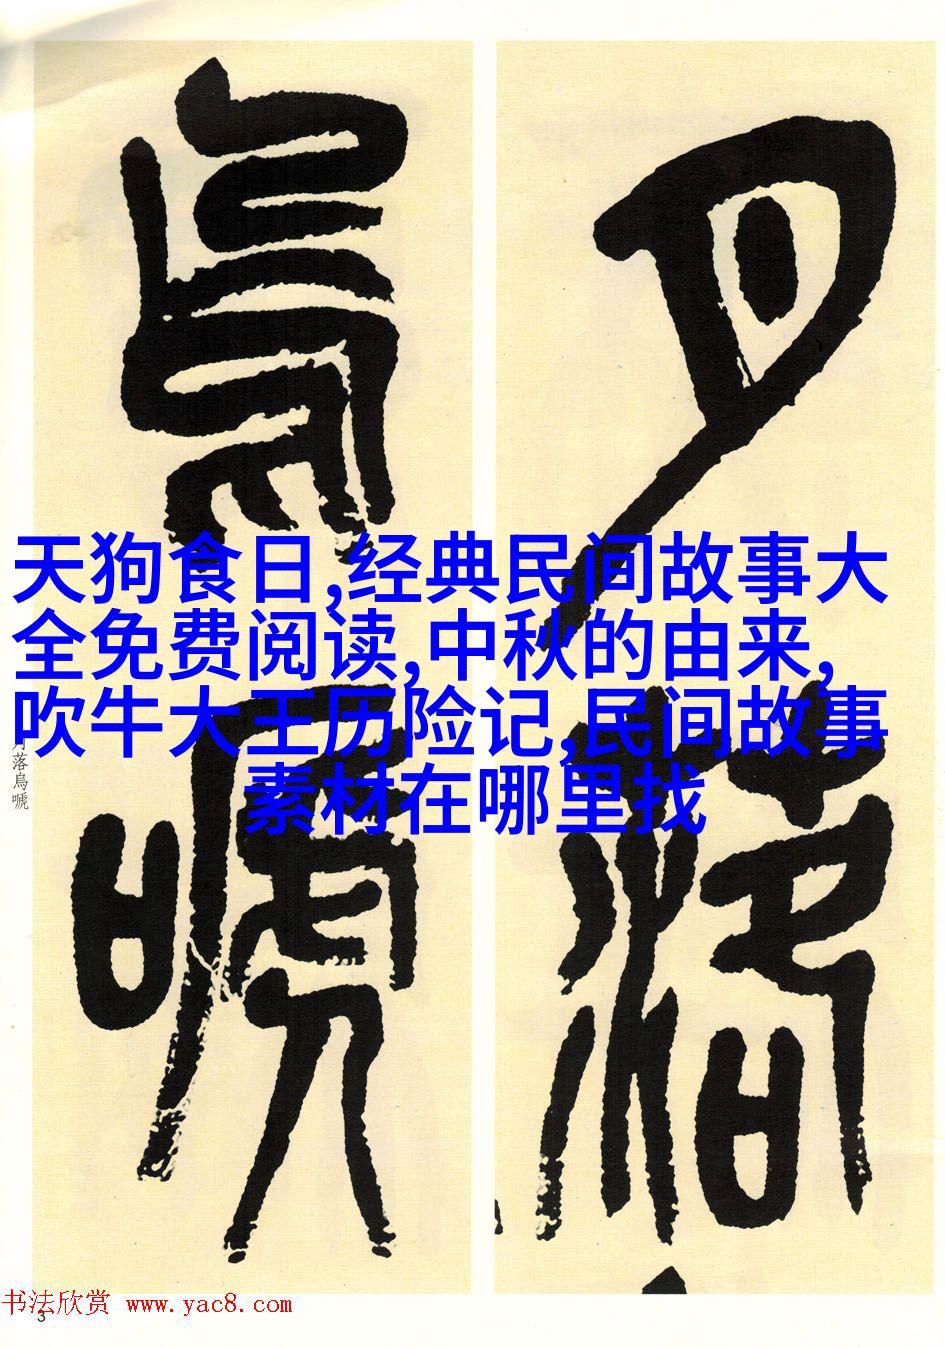 月落
烏嗁
天狗食日,经典民间故事大
全免费阅读,中秋的由来,
吹牛大王历险记,民间故事
素材在哪里找
月落烏嗁
书法欣赏 www.yac8.com
3